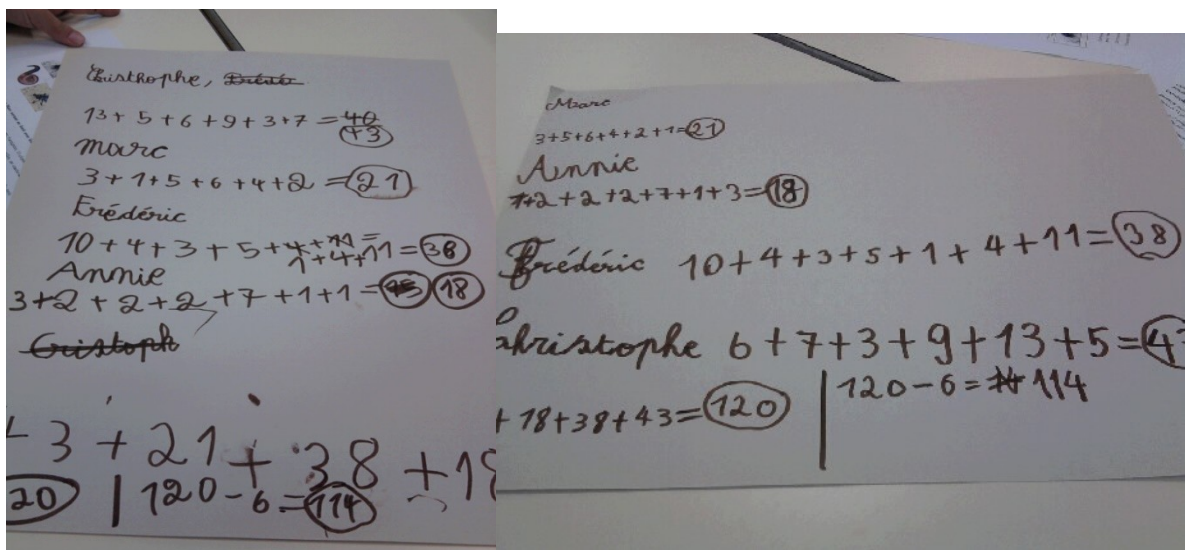 Christhophe,
13+5+6+9+3+7=
+3
Marc
3+1+5+6+4+2=21
Frédéric
10+4+3+5+4+11=
1+4+11=38
Annie
3+2+2+2+7+1+1=18
Cristoph
3+21+38+18
20 | 120-6=114
Marc
3+5+6+4+2+1=21
Annie
2+2+2+7+1+3=18
Frédéric 10+4+3+5+1+4+11=38
Christophe 6+7+3+9+13+5=4
+18+38+43=120 | 120-6=114